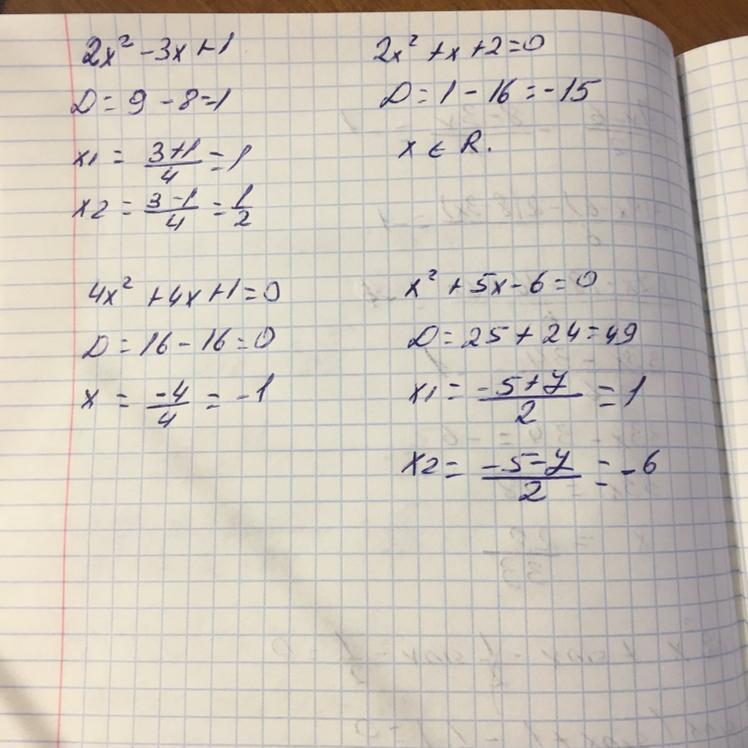 2x² - 3x + 1
D = 9 - 8 = 1
x1 = (3+1)/4 = 1
x2 = (3-1)/4 = 1/2
2x² + x + 2 = 0
D = 1 - 16 = -15
x ∈ R.
4x² + 4x + 1 = 0
D = 16 - 16 = 0
x = -4/4 = -1
x² + 5x - 6 = 0
D = 25 + 24 = 49
x1 = (-5+7)/2 = 1
x2 = (-5-7)/2 = -6